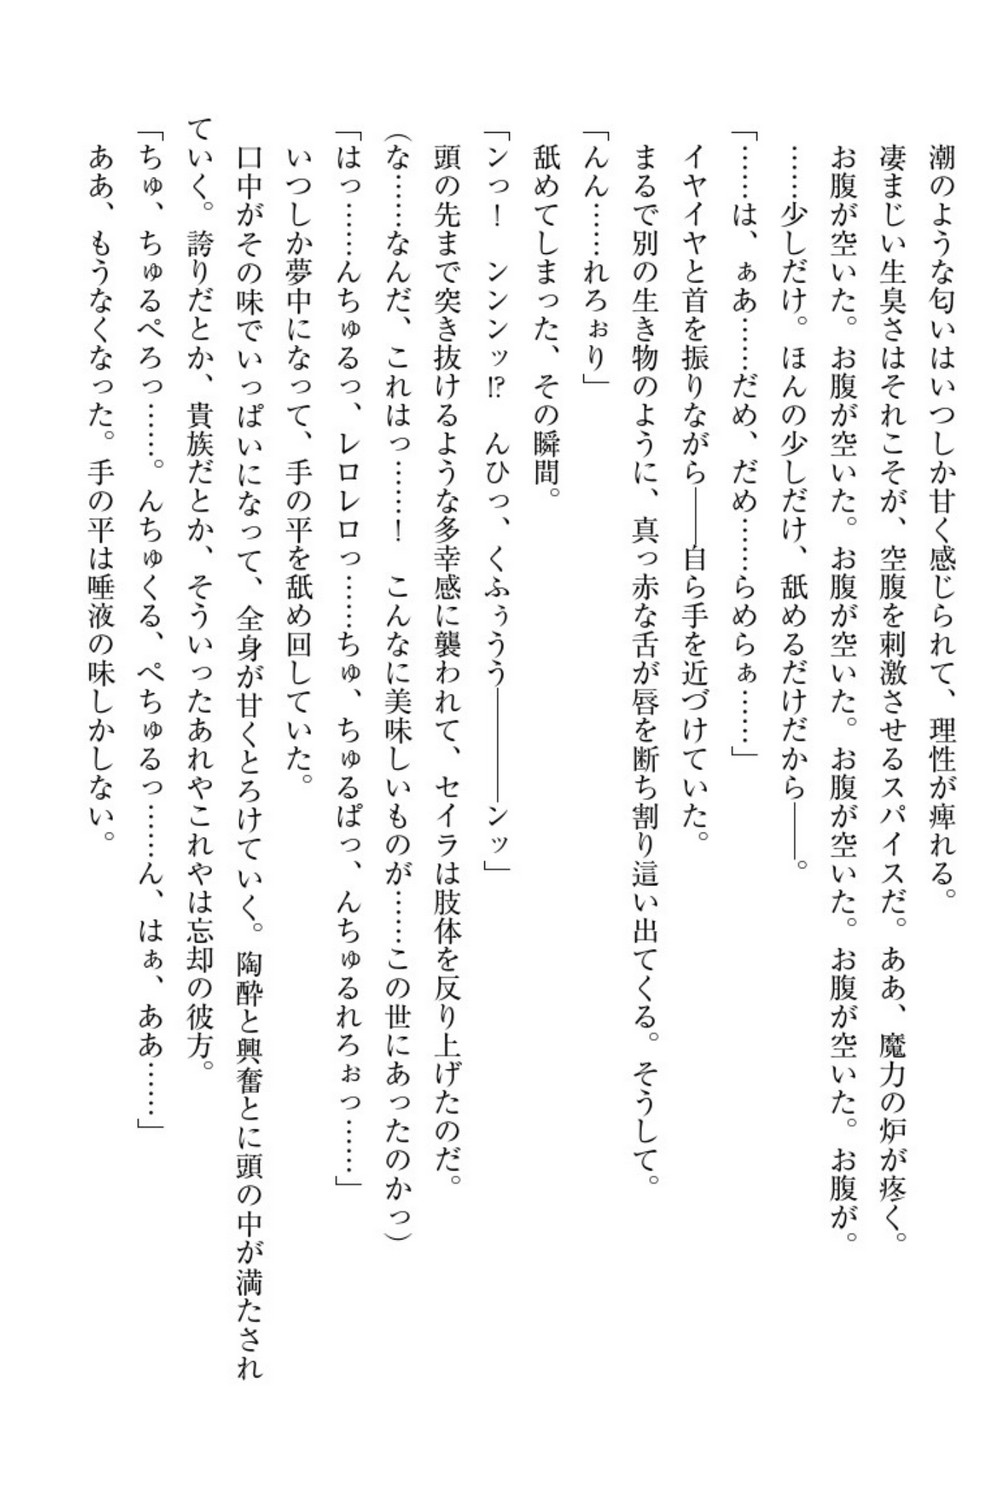 潮のような匂いはいつしか甘く感じられて、理性が痺れる。
凄まじい生臭さはそれこそが、空腹を刺激させるスパイスだ。ああ、魔力の炉が疼く。
お腹が空いた。お腹が空いた。お腹が空いた。お腹が空いた。お腹が空いた。お腹が。
……少しだけ。ほんの少しだけ、舐めるだけだから――。
「……は、ぁあ……だめ、だめ……らめらぁ……」
イヤイヤと首を振りながら――自ら手を近づけていた。
まるで別の生き物のように、真っ赤な舌が唇を断ち割り這い出てくる。そうして。
「んん……れろぉり」
舐めてしまった、その瞬間。
「ンっ！　ンンンッ⁉　んひっ、くふぅうう――――ンッ」
頭の先まで突き抜けるような多幸感に襲われて、セイラは肢体を反り上げたのだ。
（な……なんだ、これはっ……！　こんなに美味しいものが……この世にあったのかっ）
「はっ……んちゅるっ、レロレロっ……ちゅ、ちゅるぱっ、んちゅるれろぉっ……」
いつしか夢中になって、手の平を舐め回していた。
口中がその味でいっぱいになって、全身が甘くとろけていく。陶酔と興奮とに頭の中が満たされ
ていく。誇りだとか、貴族だとか、そういったあれやこれやは忘却の彼方。
「ちゅ、ちゅるぺろっ……。んちゅくる、ぺちゅるっ……ん、はぁ、ああ……」
ああ、もうなくなった。手の平は唾液の味しかしない。